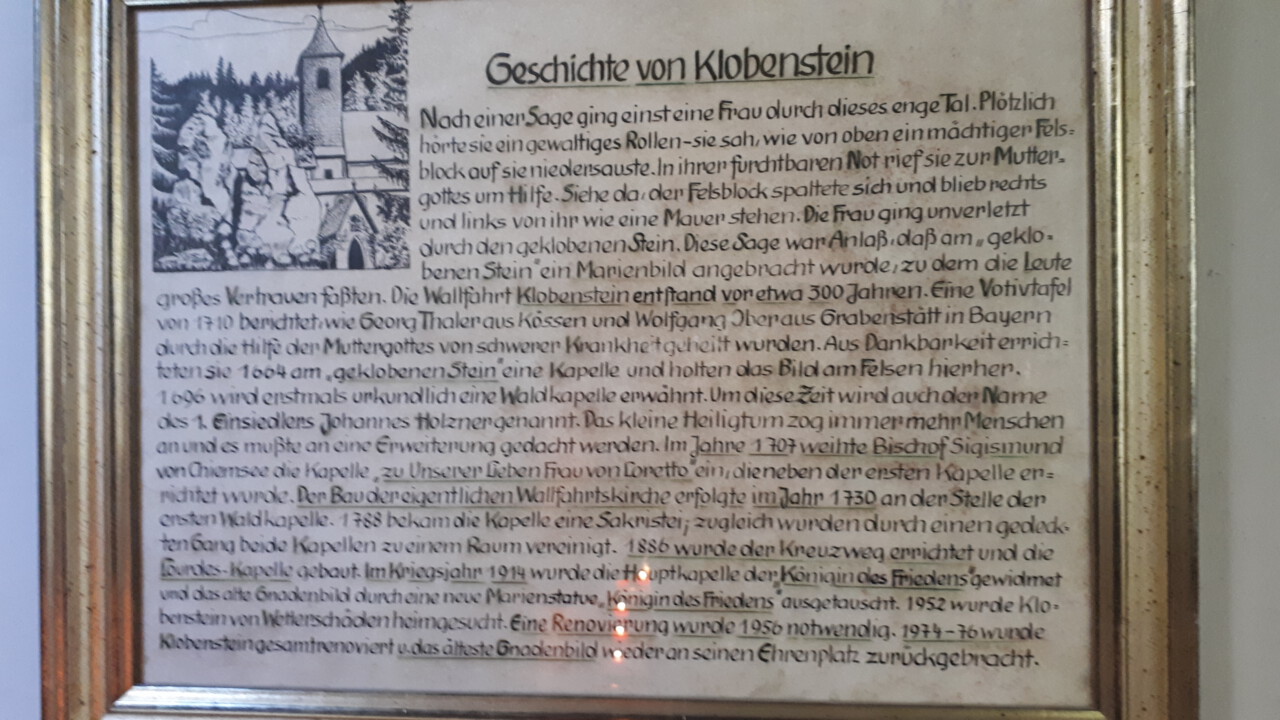 Geschichte von Klobenstein
Nach einer Sage ging einst eine Frau durch dieses enge Tal. Plötzlich
hörte sie ein gewaltiges Rollen-sie sah, wie von oben ein mächtiger Fels=
block auf sie niedersauste. In ihrer furchtbaren Not rief sie zur Mutter-
gottes um Hilfe. Siehe da, der Felsblock spaltete sich und blieb rechts
und links von ihr wie eine Mauer stehen. Die Frau ging unverletzt
durch den geklobenen Stein. Diese Sage war Anlaß, daß am „geklo-
benen Stein" ein Marienbild angebracht wurde, zu dem die Leute
großes Vertrauen faßten. Die Wallfahrt Klobenstein entstand vor etwa 300 Jahren. Eine Votivtafel
von 1710 berichtet, wie Georg Thaler aus Kössen und Wolfgang Ober aus Grabenstätt in Bayern
durch die Hilfe der Muttergottes von schwerer Krankheit geheilt wurden. Aus Dankbarkeit errich=
teten sie 1664 am „geklobenen Stein" eine Kapelle und holten das Bild am Felsen hierher.
1696 wird erstmals urkundlich eine Waldkapelle erwähnt. Um diese Zeit wird auch der Name
des 1. Einsiedlers Johannes Holzner genannt. Das kleine Heiligtum zog immer mehr Menschen
an und es mußte an eine Erweiterung gedacht werden. Im Jahre 1707 weihte Bischof Sigismund
von Chiemsee die Kapelle „zu Unserer Lieben Frau von Loretto" ein, die neben der ersten Kapelle er-
richtet wurde. Der Bau der eigentlichen Wallfahrtskirche erfolgte im Jahr 1730 an der Stelle der
ersten Waldkapelle. 1788 bekam die Kapelle eine Sakristei, zugleich wurden durch einen gedeck-
ten Gang beide Kapellen zu einem Raum vereinigt. 1886 wurde der Kreuzweg errichtet und die
Lourdes-Kapelle gebaut. Im Kriegsjahr 1914 wurde die Hauptkapelle der „Königin des Friedens" gewidmet
und das alte Gnadenbild durch eine neue Marienstatue „Königin des Friedens" ausgetauscht. 1952 wurde Klo-
benstein von Wetterschäden heimgesucht. Eine Renovierung wurde 1956 notwendig. 1974-76 wurde
Klobenstein gesamtrenoviert u. das älteste Gnadenbild wieder an seinen Ehrenplatz zurückgebracht.